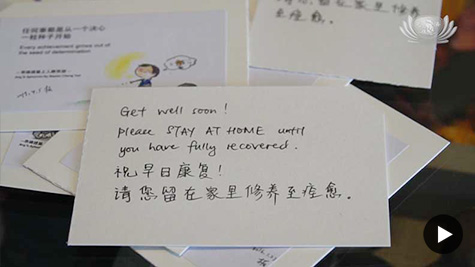 任何事都是从一个决心
一粒种子开始
Every achievement grows out of
the seed of determination
Get well soon!
please STAY AT HOME until
you have fully recovered.
祝早日康复!
请您留在家里修养至痊愈。